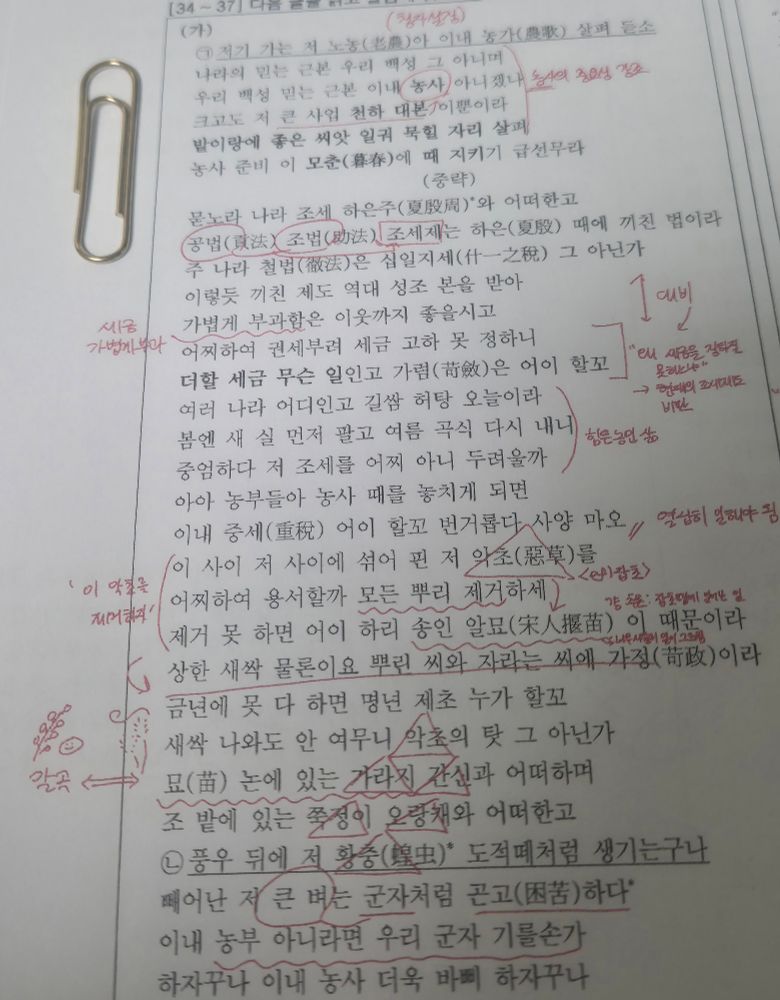 [34 ~ 37] 다음 글을 읽고
(가)
㉠ 저기 가는 저 노농(老農)아 이내 농가(農歌) 살펴 듣소
나라의 믿는 근본 우리 백성 그 아니며
우리 백성 믿는 근본 이내 농사 아니겠나
농사의 중요성 강조
크고도 저 큰 사업 천하 대본 이뿐이라
밭이랑에 좋은 씨앗 일궈 묵힐 자리 살펴
농사 준비 이 모춘(暮春)에 때 지키기 급선무라
(중략)
묻노라 나라 조세 하은주(夏殷周)*와 어떠한고
공법(貢法) 조법(助法) 조세제는 하은(夏殷) 때에 끼친 법이라
주 나라 철법(徹法)은 십일지세(什一之稅) 그 아닌가
이렇듯 끼친 제도 역대 성조 본을 받아
대비
세금 가볍게 부과
가볍게 부과함은 이웃까지 좋을시고
어찌하여 권세부려 세금 고하 못 정하니
더할 세금 무슨 일인고 가렴(苛斂)은 어이 할꼬
비판
여러 나라 어디인고 길쌈 허탕 오늘이라
봄엔 새 실 먼저 팔고 여름 곡식 다시 내니
힘든 농민 삶
중엄하다 저 조세를 어찌 아니 두려울까
아아 농부들아 농사 때를 놓치게 되면
이내 중세(重稅) 어이 할꼬 번거롭다 사양 마오
열심히 일해야 됨
이 사이 저 사이에 섞어 핀 저 악초(惡草)를
'이 악초를
어찌하여 용서할까 모든 뿌리 제거하세
제거 못 하면 어이 하리 송인 알묘(宋人揠苗) 이 때문이라
상한 새싹 물론이요 뿌린 씨와 자라는 씨에 가정(苛政)이라
금년에 못 다 하면 명년 제초 누가 할꼬
새싹 나와도 안 여무니 악초의 탓 그 아닌가
알곡
묘(苗) 논에 있는 가라지 간신과 어떠하며
조 밭에 있는 쭉정이 오랑캐와 어떠한고
㉡ 풍우 뒤에 저 황충(蝗虫)* 도적떼처럼 생기는구나
빼어난 저 큰 벼는 군자처럼 곤고(困苦)하다*
이내 농부 아니라면 우리 군자 기를손가
하자꾸나 이내 농사 더욱 바삐 하자꾸나